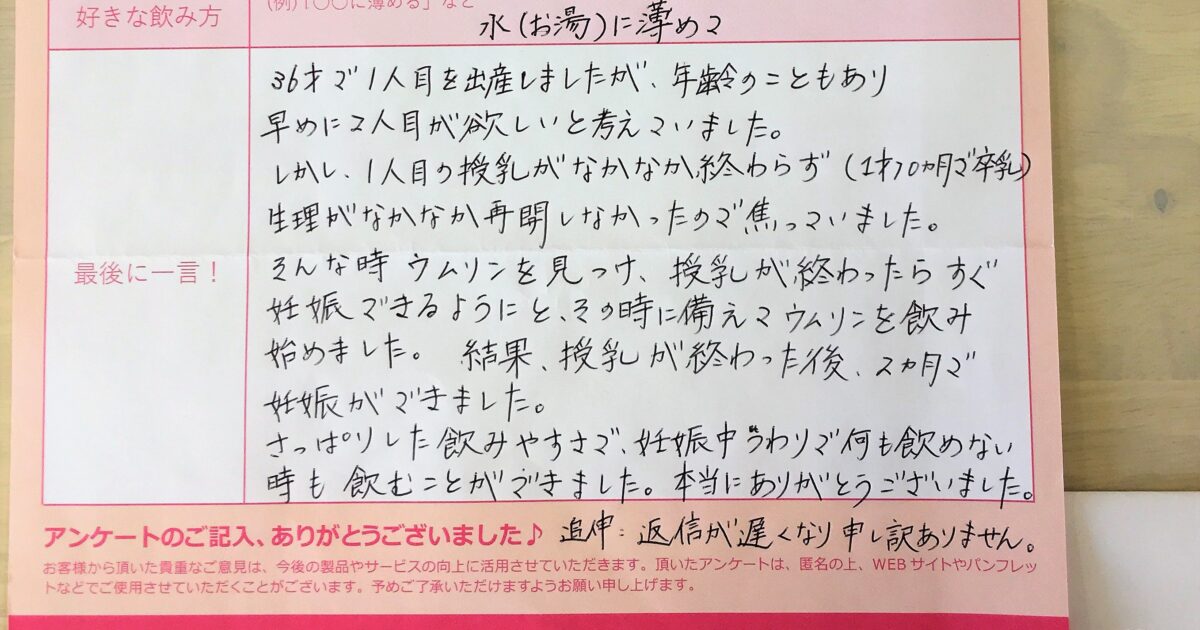 (例)「〇〇に薄める」など
好きな飲み方
水(お湯)に薄めて
36才で1人目を出産しましたが、年齢のこともあり
早めに2人目が欲しいと考えていました。
しかし、1人目の授乳がなかなか終わらず(1才10ヵ月で卒乳)
生理がなかなか再開しなかったので焦っていました。
最後に一言!
そんな時 ウムリンを見つけ、授乳が終わったらすぐ
妊娠できるようにと、その時に備えてウムリンを飲み
始めました。 結果、授乳が終わった後、2ヵ月で
妊娠ができました。
さっぱりした飲みやすさで、妊娠中つわりで何も飲めない
時も飲むことができました。本当にありがとうございました。
アンケートのご記入、ありがとうございました♪
追伸:返信が遅くなり申し訳ありません。
お客様から頂いた貴重なご意見は、今後の製品やサービスの向上に活用させていただきます。頂いたアンケートは、匿名の上、WEBサイトやパンフレッ
トなどでご使用させていただくことがございます。予めご了承いただけますようお願い申し上げます。